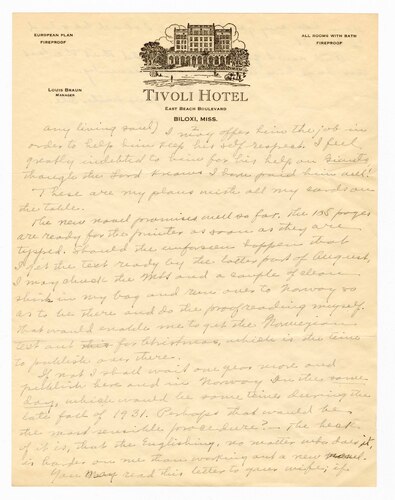 EUROPEAN PLAN
FIREPROOF
ALL ROOMS WITH BATH
FIREPROOF
LOUIS BRAUN
MANAGER
TIVOLI HOTEL
EAST BEACH BOULEVARD
BILOXI, MISS.
any living soul) I may offer him the job in
order to help him keep his self respect. I feel
greatly indebted to him for his help on
though the Lord knows I have paid him well!
These are my plans with all my cards on
the table.
The new novel promises well so far. The 105 pages
are ready for the printer as soon as they are
typed. Should the unforseen happen that
I get the text ready by the latter part of August,
I may chuck the Mss and a couple of clean
shirts in my bag and run over to Norway so
as to be there and do the proofreading myself.
That would enable me to get the Norwegian
text out for Christmas, which is the time
to publish over there.
If not I shall wait one year more and
publish here and in Norway on the same
day, which would be some time during the
late fall of 1931. Perhaps that would be
the most sensible procedure? The heck
of it is, that the Englishing, no matter who does it,
is harder on me than working out a new novel.
You may read this letter to your wife, if